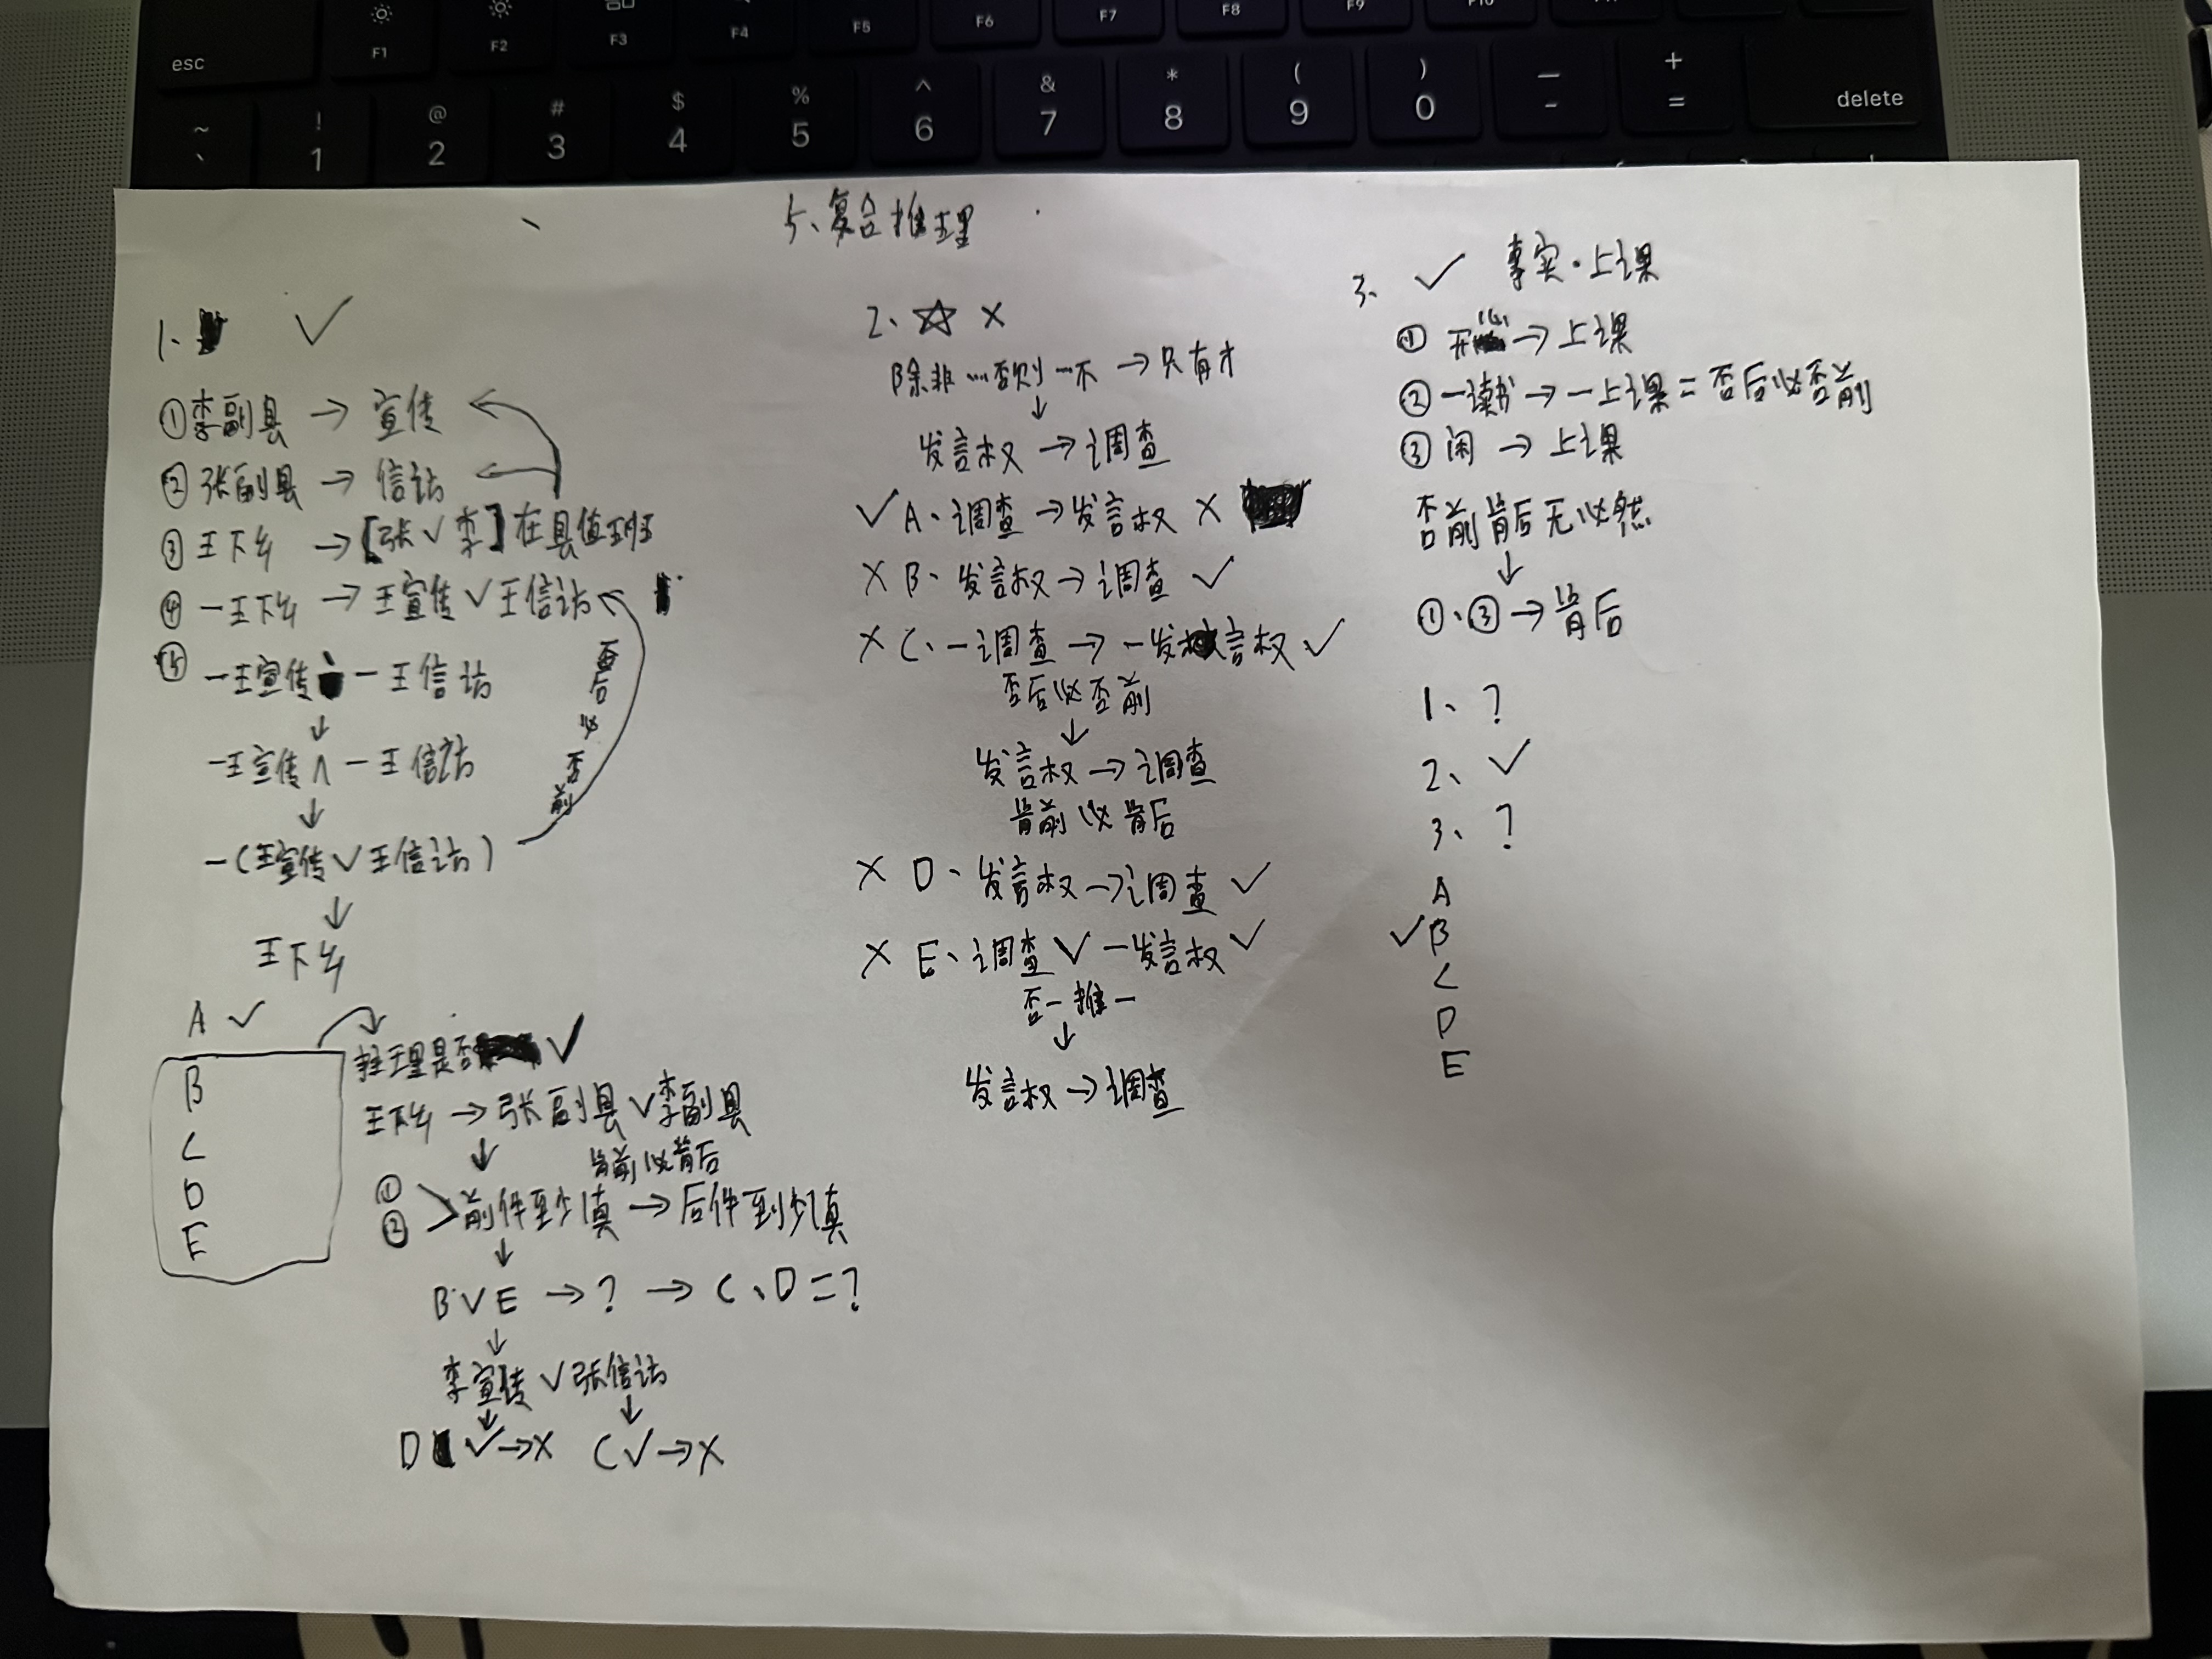 esc
F1
F2
F3
F4
F5
F6
F7
F8
F9
F10
~ `
! 1
@ 2
# 3
$ 4
% 5
^ 6
& 7
* 8
( 9
) 0
— -
+ =
delete
5、复合推理
1、 ✓
①李副县 → 宣传
②张副县 → 信访
③王下乡 → [张∨李]在县值班
④ ￢王下乡 → 王宣传∨王信访
⑤ ￢王宣传 ￢王信访
↓
￢王宣传∧￢王信访
↓
￢(王宣传∨王信访)
否后必否前
↓
王下乡
A ✓
B
C
D
E
推理是否 ✓
王下乡 → 张副县∨李副县
↓ 肯前必肯后
①
② 前件至少1真 → 后件至少1真
↓
B∨E → ? → C、D=?
↓
李宣传∨张信访
↓ ↓
D ✓→X C✓→X
2、☆ X
除非…否则…不 → 只有才
↓
发言权 → 调查
✓A、调查→发言权 X
X B、发言权→调查 ✓
X C、￢调查→￢发言权 ✓
否后必否前
↓
发言权→调查
肯前必肯后
X D、发言权→调查 ✓
X E、调查∨￢发言权 ✓
否一推一
↓
发言权→调查
3、 ✓ 事实·上课
① 开心→上课
②￢读书→￢上课=否后必否前
③闲→上课
否前肯后无必然
↓
①、③→肯后
1、?
2、✓
3、?
A
✓B
C
D
E